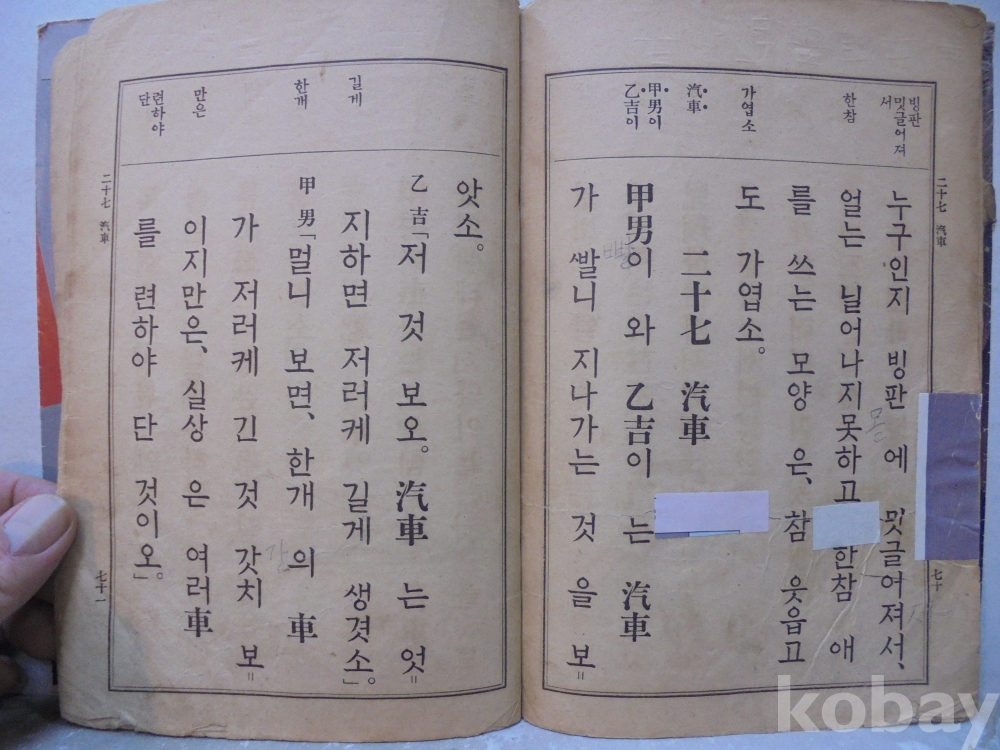 二十七 汽車
七十
빙판
밋글어져
서
한참
가엽소
汽車
甲男이
乙吉이
누구인지 빙판 에 밋글어져서、
얼는 닐어나지못하고 한참 애
를 쓰는 모양 은、참 웃읍고
도 가엽소。
二十七 汽車
甲男이 와 乙吉이 는 汽車
가 ᄲᅡᆯ니 지나가는 것 을 보
길게
한개
만은
련하야
단
앗소。
乙吉「저 것 보오。汽車 는 엇=
지하면 저러케 길게 생겻소」。
甲男「멀니 보면、한개 의 車
가 저러케 긴 것 갓치 보=
이지만은、실상 은 여러車
를 련하야 단 것이오」。
二十七 汽車
七十一
kobay